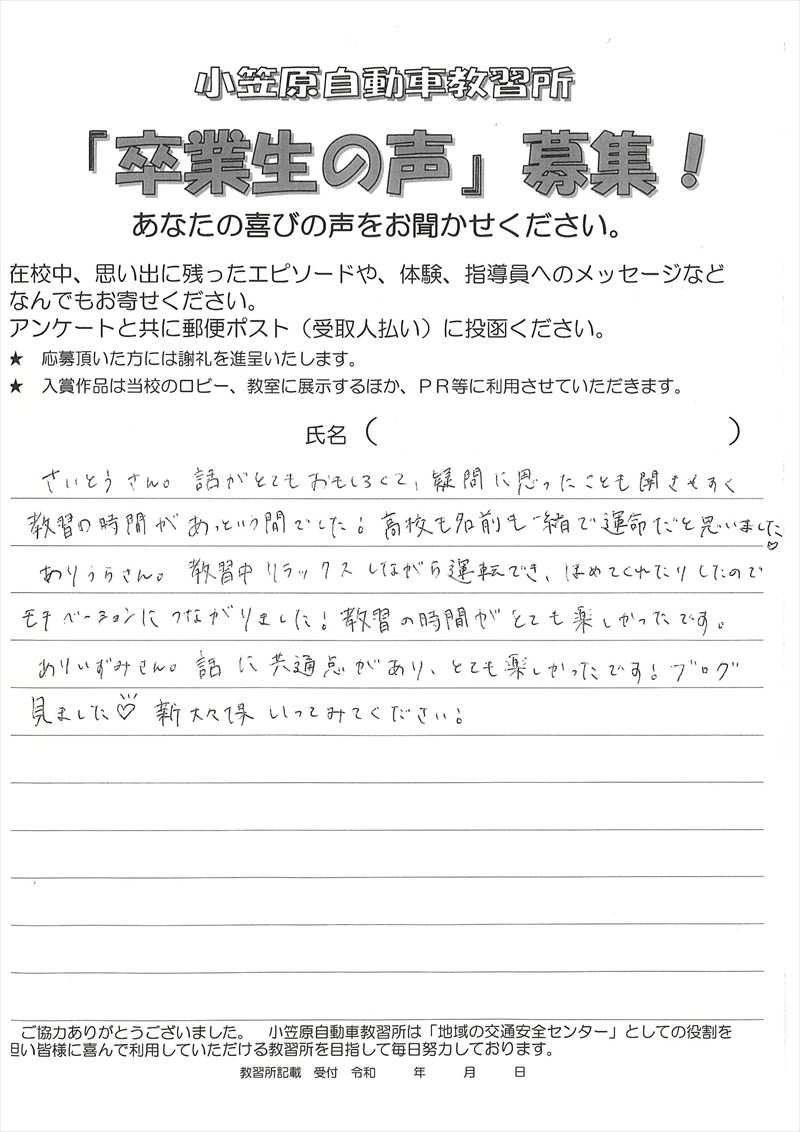 小笠原自動車教習所
『卒業生の声』募集！
あなたの喜びの声をお聞かせください。
在校中、思い出に残ったエピソードや、体験、指導員へのメッセージなど
なんでもお寄せください。
アンケートと共に郵便ポスト（受取人払い）に投函ください。
★　応募頂いた方には謝礼を進呈いたします。
★　入賞作品は当校のロビー、教室に展示するほか、ＰＲ等に利用させていただきます。
氏名（　　　　　　　　　　）
さいとうさん。話がとてもおもしろくて、疑問に思ったことも聞きやすく
教習の時間があっという間でした！高校も名前も一緒で運命だと思いました♡
ありうらさん。教習中リラックスしながら運転でき、ほめてくれたりしたので
モチベーションにつながりました！教習の時間がとても楽しかったです。
ありいずみさん。話に共通点があり、とても楽しかったです！ブログ
見ました♡ 新大久保いってみてください！
ご協力ありがとうございました。　小笠原自動車教習所は「地域の交通安全センター」としての役割を
担い皆様に喜んで利用していただける教習所を目指して毎日努力しております。
教習所記載　受付　令和　　　年　　　月　　　日